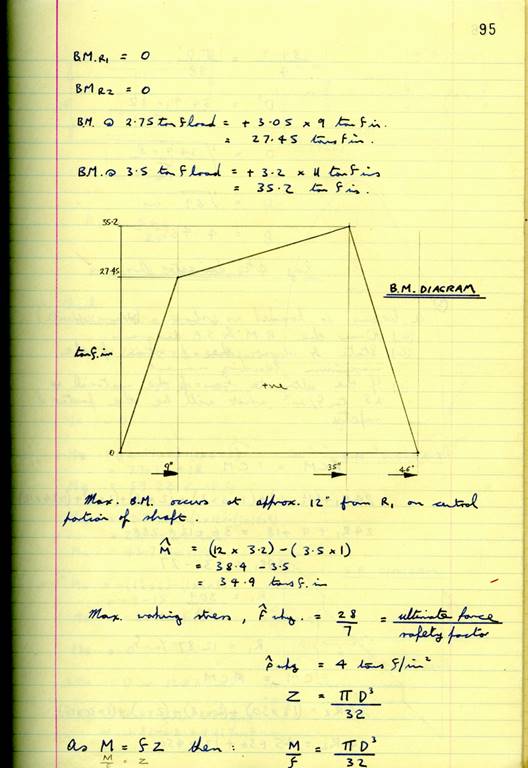 95
B.M.R₁ = 0
BM R2 = 0
B.M. @ 2.75 tonf load = + 3.05 x 9 tonf in.
= 27.45 tonsf in.
B.M. @ 3.5 tonf load = + 3.2 x 11 tonf ins
= 35.2 tonf ins.
35.2
27.45
B.M. DIAGRAM
tonf.in
+ve
0
9" 35" 46"
Max. B.M. occurs at approx. 12" from R₁ on central
portion of shaft.
M̂ = (12 x 3.2) - (3.5 x 1)
= 38.4 - 3.5
= 34.9 tonsf.in
Max. working stress, f̂ wkg. = 28/7 = ultimate force/safety factor
f̂ wkg = 4 tons f/in²
Z = πD³/32
As M = f Z then : M/f = πD³/32
M/f = Z